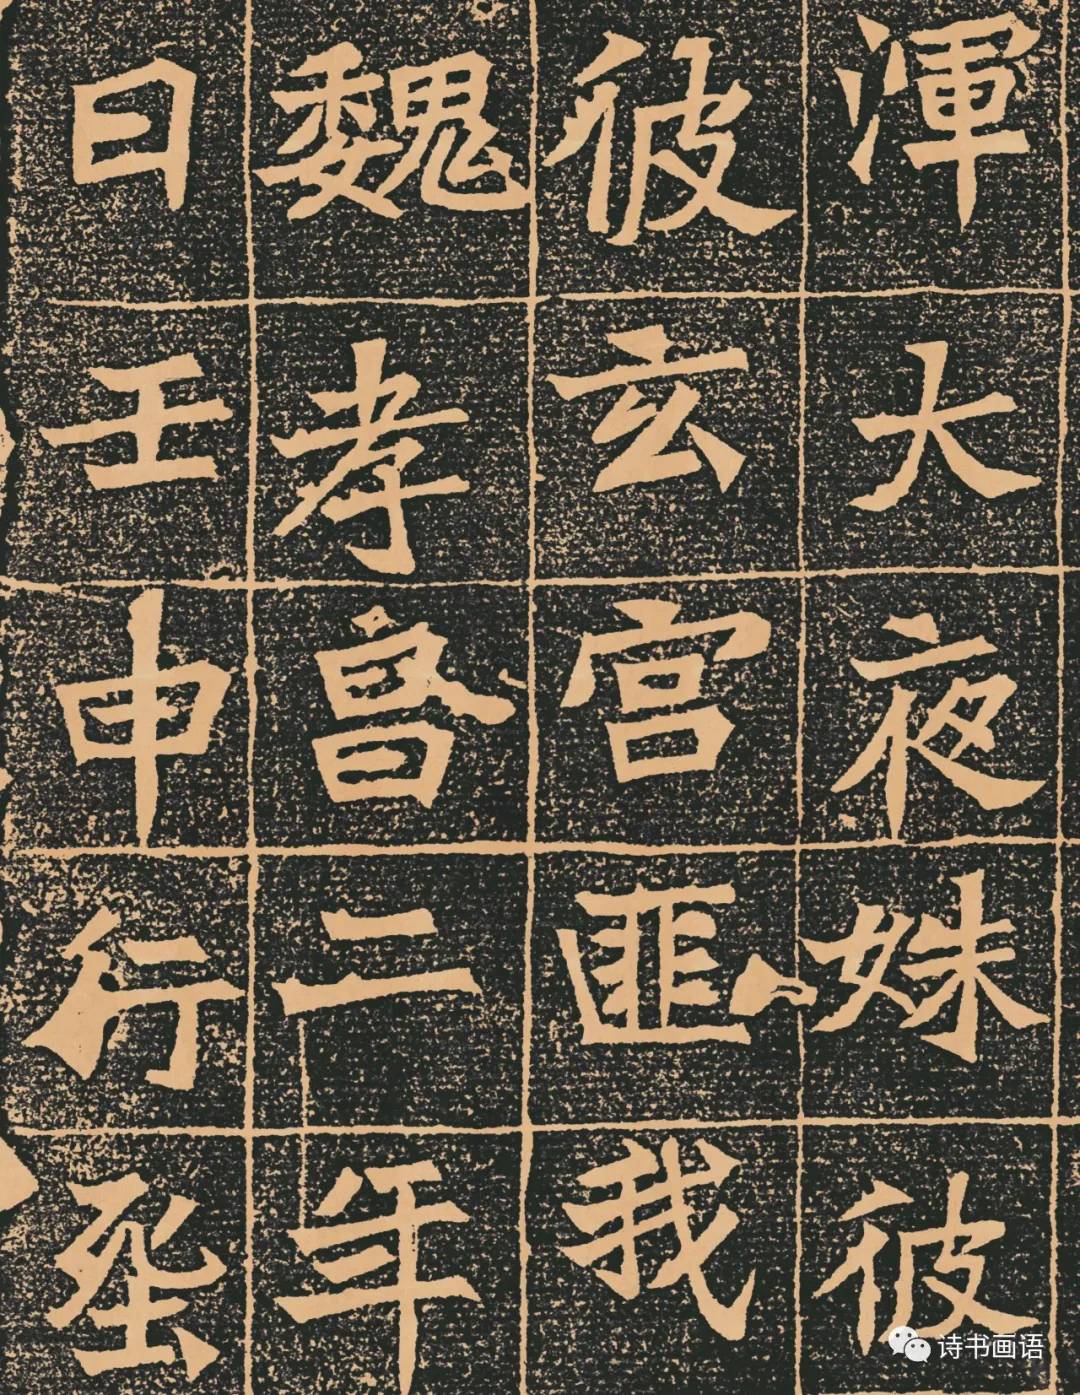 渾大夜姝彼
彼玄宫匪我
魏孝昌二年
日壬申行葬
诗书画语